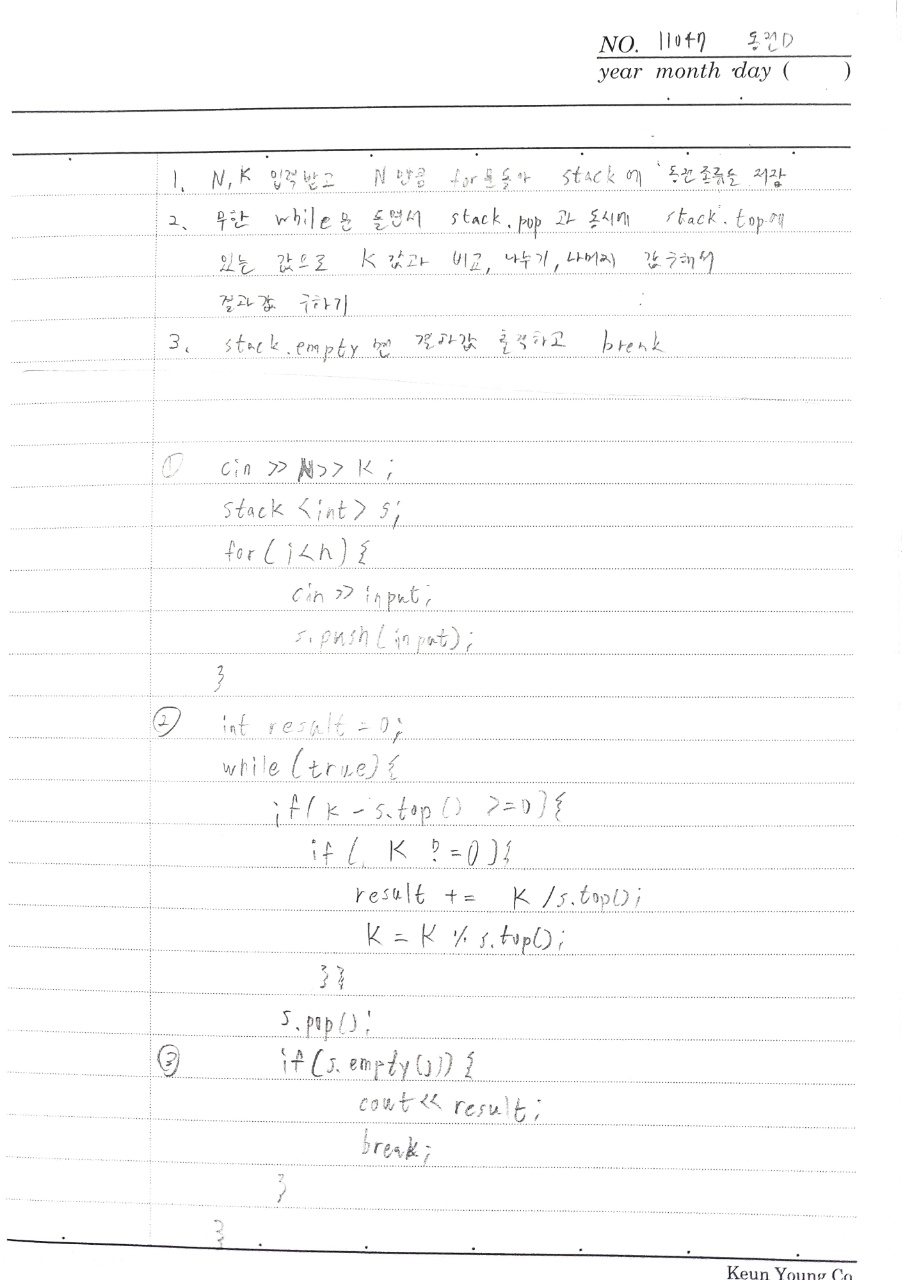 NO. 11047 동전0
year month day ( )
1. N, K 입력받고 N 만큼 for문돌아 stack에 동전종류를 저장
2. 무한 while문 돌면서 stack.pop 과 동시에 stack.top에
있는 값으로 K 값과 비교, 나누기, 나머지 값구해서
결과값 구하기
3. stack.empty 면 결과값 출력하고 break
① cin >> N >> K ;
stack <int> s;
for ( i<n ) {
cin >> input;
s.push(input);
}
② int result = 0;
while (true) {
if( K - s.top() >=0 ) {
if ( K != 0 ) {
result += K / s.top();
K = K % s.top();
} }
s.pop();
③ if (s.empty()) {
cout << result;
break;
}
}
Keun Young Co